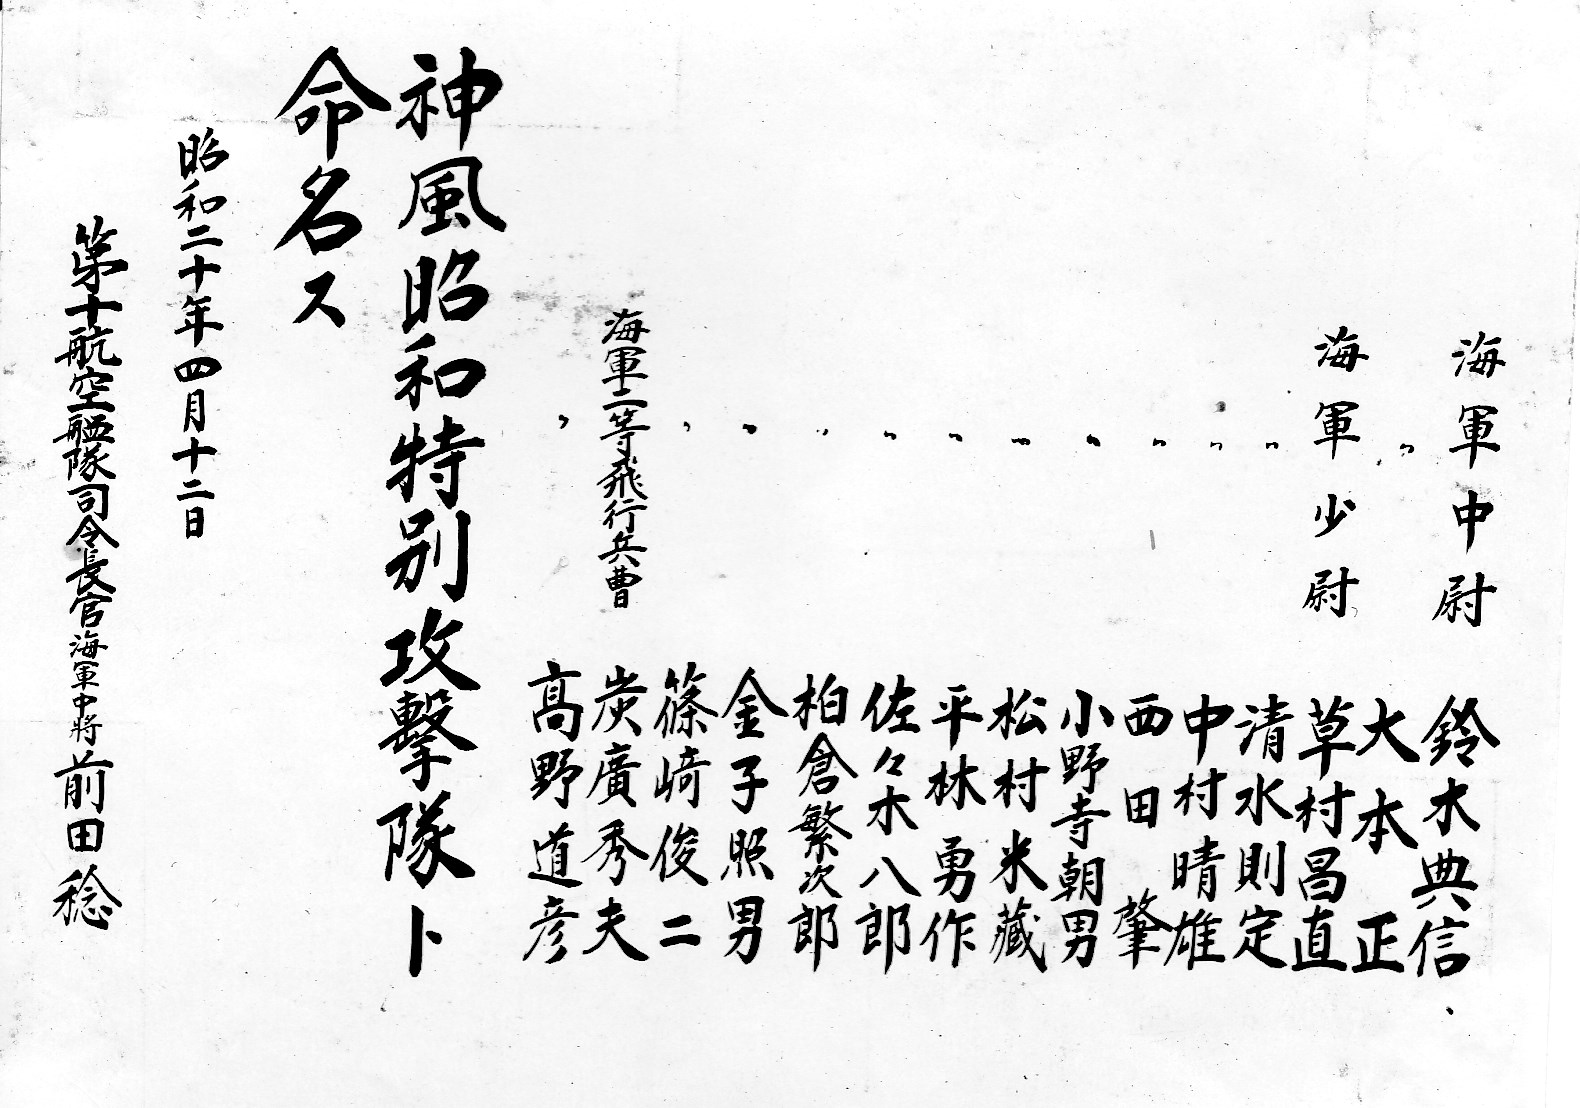 海軍中尉 鈴木典信
〃 大本正
海軍少尉 草村昌直
〃 清水則定
〃 中村晴雄
〃 西田肇
〃 小野寺朝男
〃 松村米藏
〃 平林勇作
〃 佐々木八郎
〃 柏倉繁次郎
〃 金子照男
〃 篠﨑俊二
海軍二等飛行兵曹 炭廣秀夫
〃 髙野道彦
神風昭和特別攻擊隊ト
命名ス
昭和二十年四月十二日
第十航空艦隊司令長官海軍中將前田稔